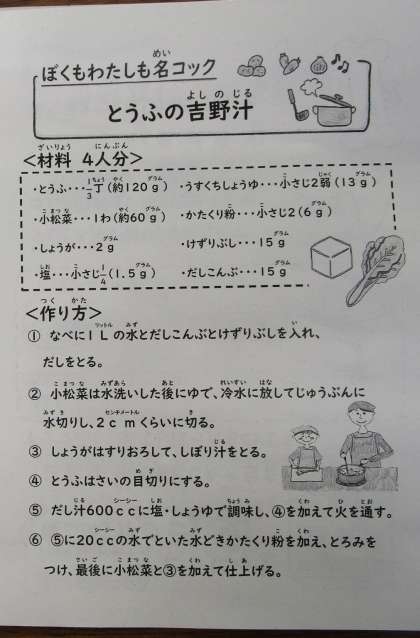 ぼくもわたしも名コック
とうふの吉野汁
<材料 4人分>
・とうふ・・・1/3丁(約120g) ・うすくちしょうゆ・・・小さじ2弱(13g)
・小松菜・・・1わ(約60g) ・かたくり粉・・・小さじ2(6g)
・しょうが・・・2g ・けずりぶし・・・15g
・塩・・・小さじ1/4(1.5g) ・だしこんぶ・・・15g
<作り方>
① なべに1Lの水とだしこんぶとけずりぶしを入れ、
だしをとる。
② 小松菜は水洗いした後にゆで、冷水に放してじゅうぶんに
水切りし、2cmくらいに切る。
③ しょうがはすりおろして、しぼり汁をとる。
④ とうふはさいの目切りにする。
⑤ だし汁600ccに塩・しょうゆで調味し、④を加えて火を通す。
⑥ ⑤に20ccの水でといた水どきかたくり粉を加え、とろみを
つけ、最後に小松菜と③を加えて仕上げる。